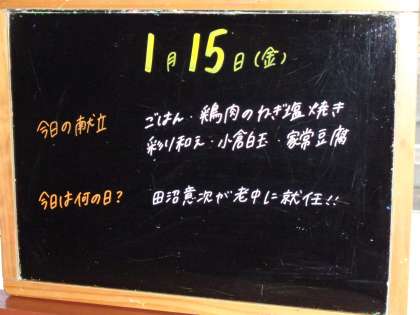 1月15日(金)
今日の献立
ごはん・鶏肉のねぎ塩焼き
彩り和え・小倉白玉・家常豆腐
今日は何の日?
田沼意次が老中に就任!!